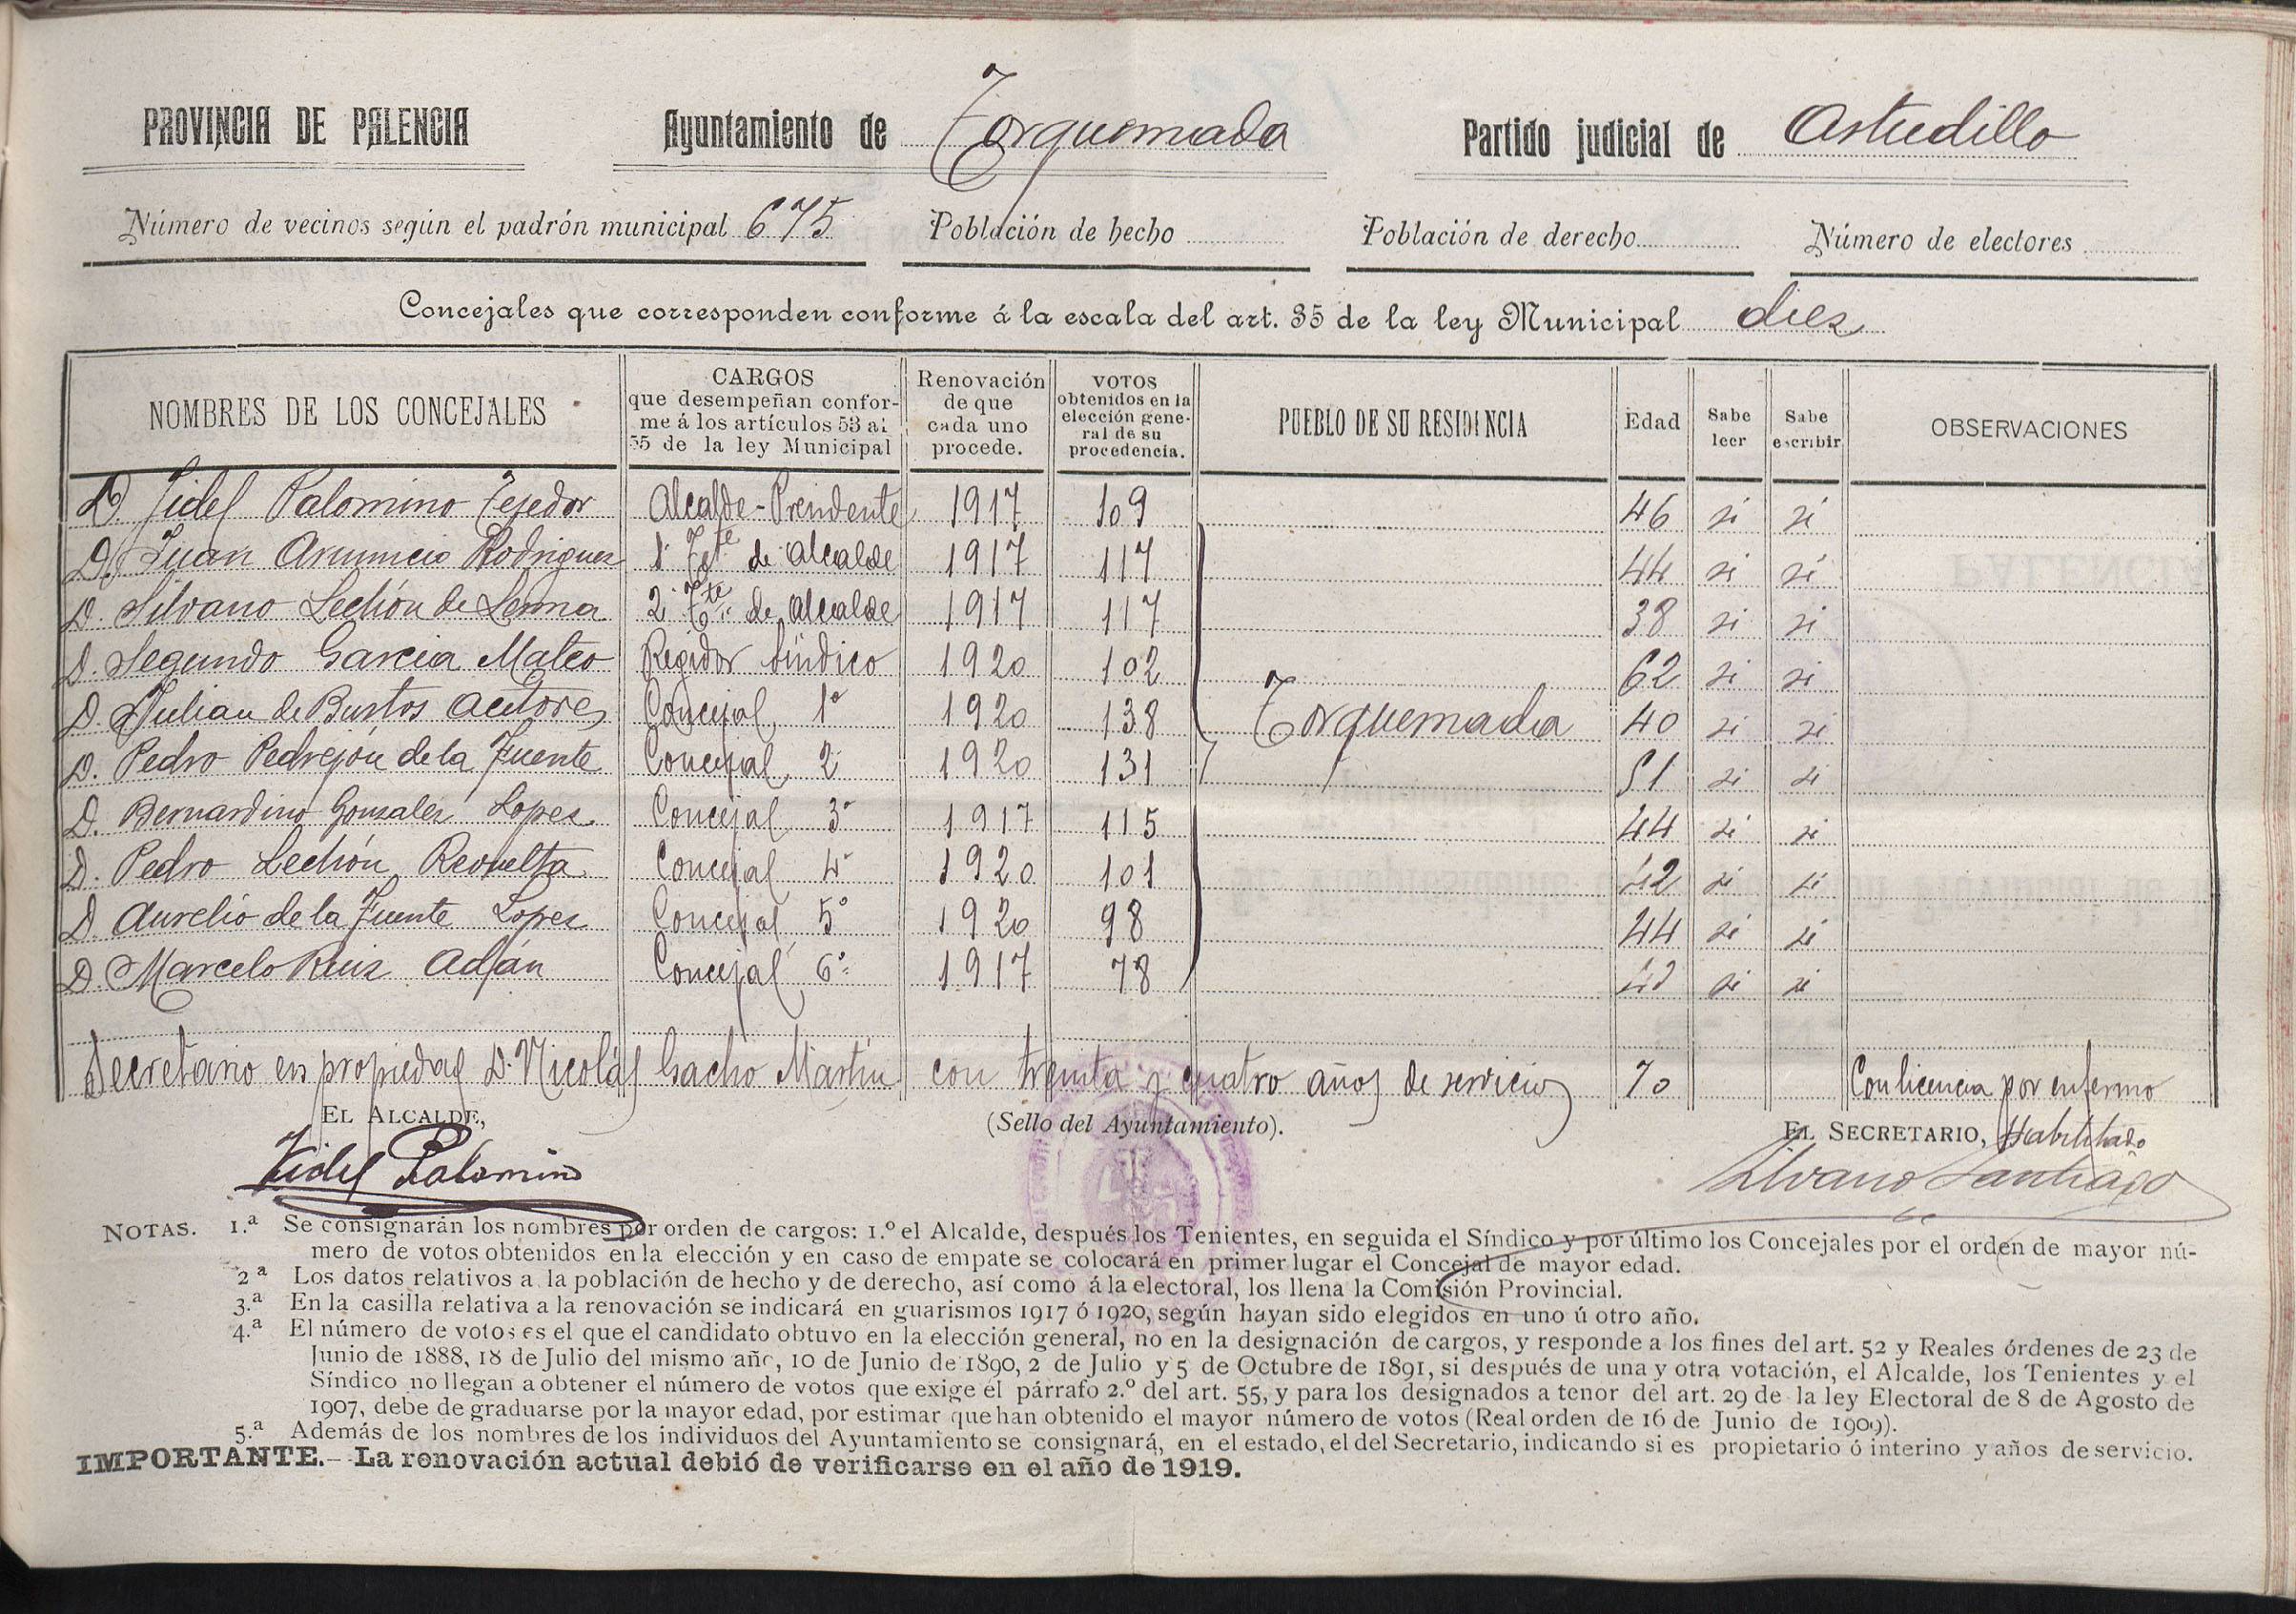 PROVINCIA DE PALENCIA Ayuntamiento de Torquemada Partido judicial de Astudillo
Número de vecinos según el padrón municipal 675 Población de hecho Población de derecho Número de electores
Concejales que corresponden conforme á la escala del art. 35 de la ley Municipal diez
NOMBRES DE LOS CONCEJALES
CARGOS
que desempeñan confor-
me á los artículos 53 al
55 de la ley Municipal
Renovación
de que
cada uno
procede.
VOTOS
obtenidos en la
elección gene-
ral de su
procedencia.
PUEBLO DE SU RESIDENCIA
Edad
Sabe
leer
Sabe
escribir
OBSERVACIONES
D. Fidel Palomino Tejedor Alcalde-Presidente 1917 109 46 si si
D. Juan Asuncio Rodriguez 1º Tte de alcalde 1917 117 44 si si
D. Silvano Lechón de Lerma 2º Tte de alcalde 1917 117 38 si si
D. Segundo Garcia Mateo Regidor Síndico 1920 102 62 si si
D. Julian de Bustos Acitores Concejal 1º 1920 138 Torquemada 40 si si
D. Pedro Pedrejón de la Fuente Concejal 2º 1920 131 51 si si
D. Bernardino Gonzalez Lopez Concejal 3º 1917 115 44 si si
D. Pedro Lechón Revuelta Concejal 4º 1920 101 42 si si
D. Aurelio de la Fuente Lopez Concejal 5º 1920 98 44 si si
D. Marcelo Ruiz Adán Concejal 6º 1917 78 si si
Secretario en propiedad D. Nicolás Gacho Martín con treinta y cuatro años de servicios 70 Con licencia por enfermo
EL ALCALDE, (Sello del Ayuntamiento). EL SECRETARIO, Habilitado
Fidel Palomino Silvano Santiago
NOTAS. 1.ª Se consignarán los nombres por orden de cargos: 1.º el Alcalde, después los Tenientes, en seguida el Síndico y por último los Concejales por el orden de mayor nú-
mero de votos obtenidos en la elección y en caso de empate se colocará en primer lugar el Concejal de mayor edad.
2ª Los datos relativos a la población de hecho y de derecho, así como á la electoral, los llena la Comisión Provincial.
3.ª En la casilla relativa a la renovación se indicará en guarismos 1917 ó 1920, según hayan sido elegidos en uno ú otro año.
4.ª El número de votos es el que el candidato obtuvo en la elección general, no en la designación de cargos, y responde a los fines del art. 52 y Reales órdenes de 23 de
Junio de 1888, 18 de Julio del mismo año, 10 de Junio de 1890, 2 de Julio y 5 de Octubre de 1891, si después de una y otra votación, el Alcalde, los Tenientes y el
Síndico no llegan a obtener el número de votos que exige el párrafo 2.º del art. 55, y para los designados a tenor del art. 29 de la ley Electoral de 8 de Agosto de
1907, debe de graduarse por la mayor edad, por estimar que han obtenido el mayor número de votos (Real orden de 16 de Junio de 1909).
5.ª Además de los nombres de los individuos del Ayuntamiento se consignará, en el estado, el del Secretario, indicando si es propietario ó interino y años de servicio.
IMPORTANTE.- La renovación actual debió de verificarse en el año de 1919.